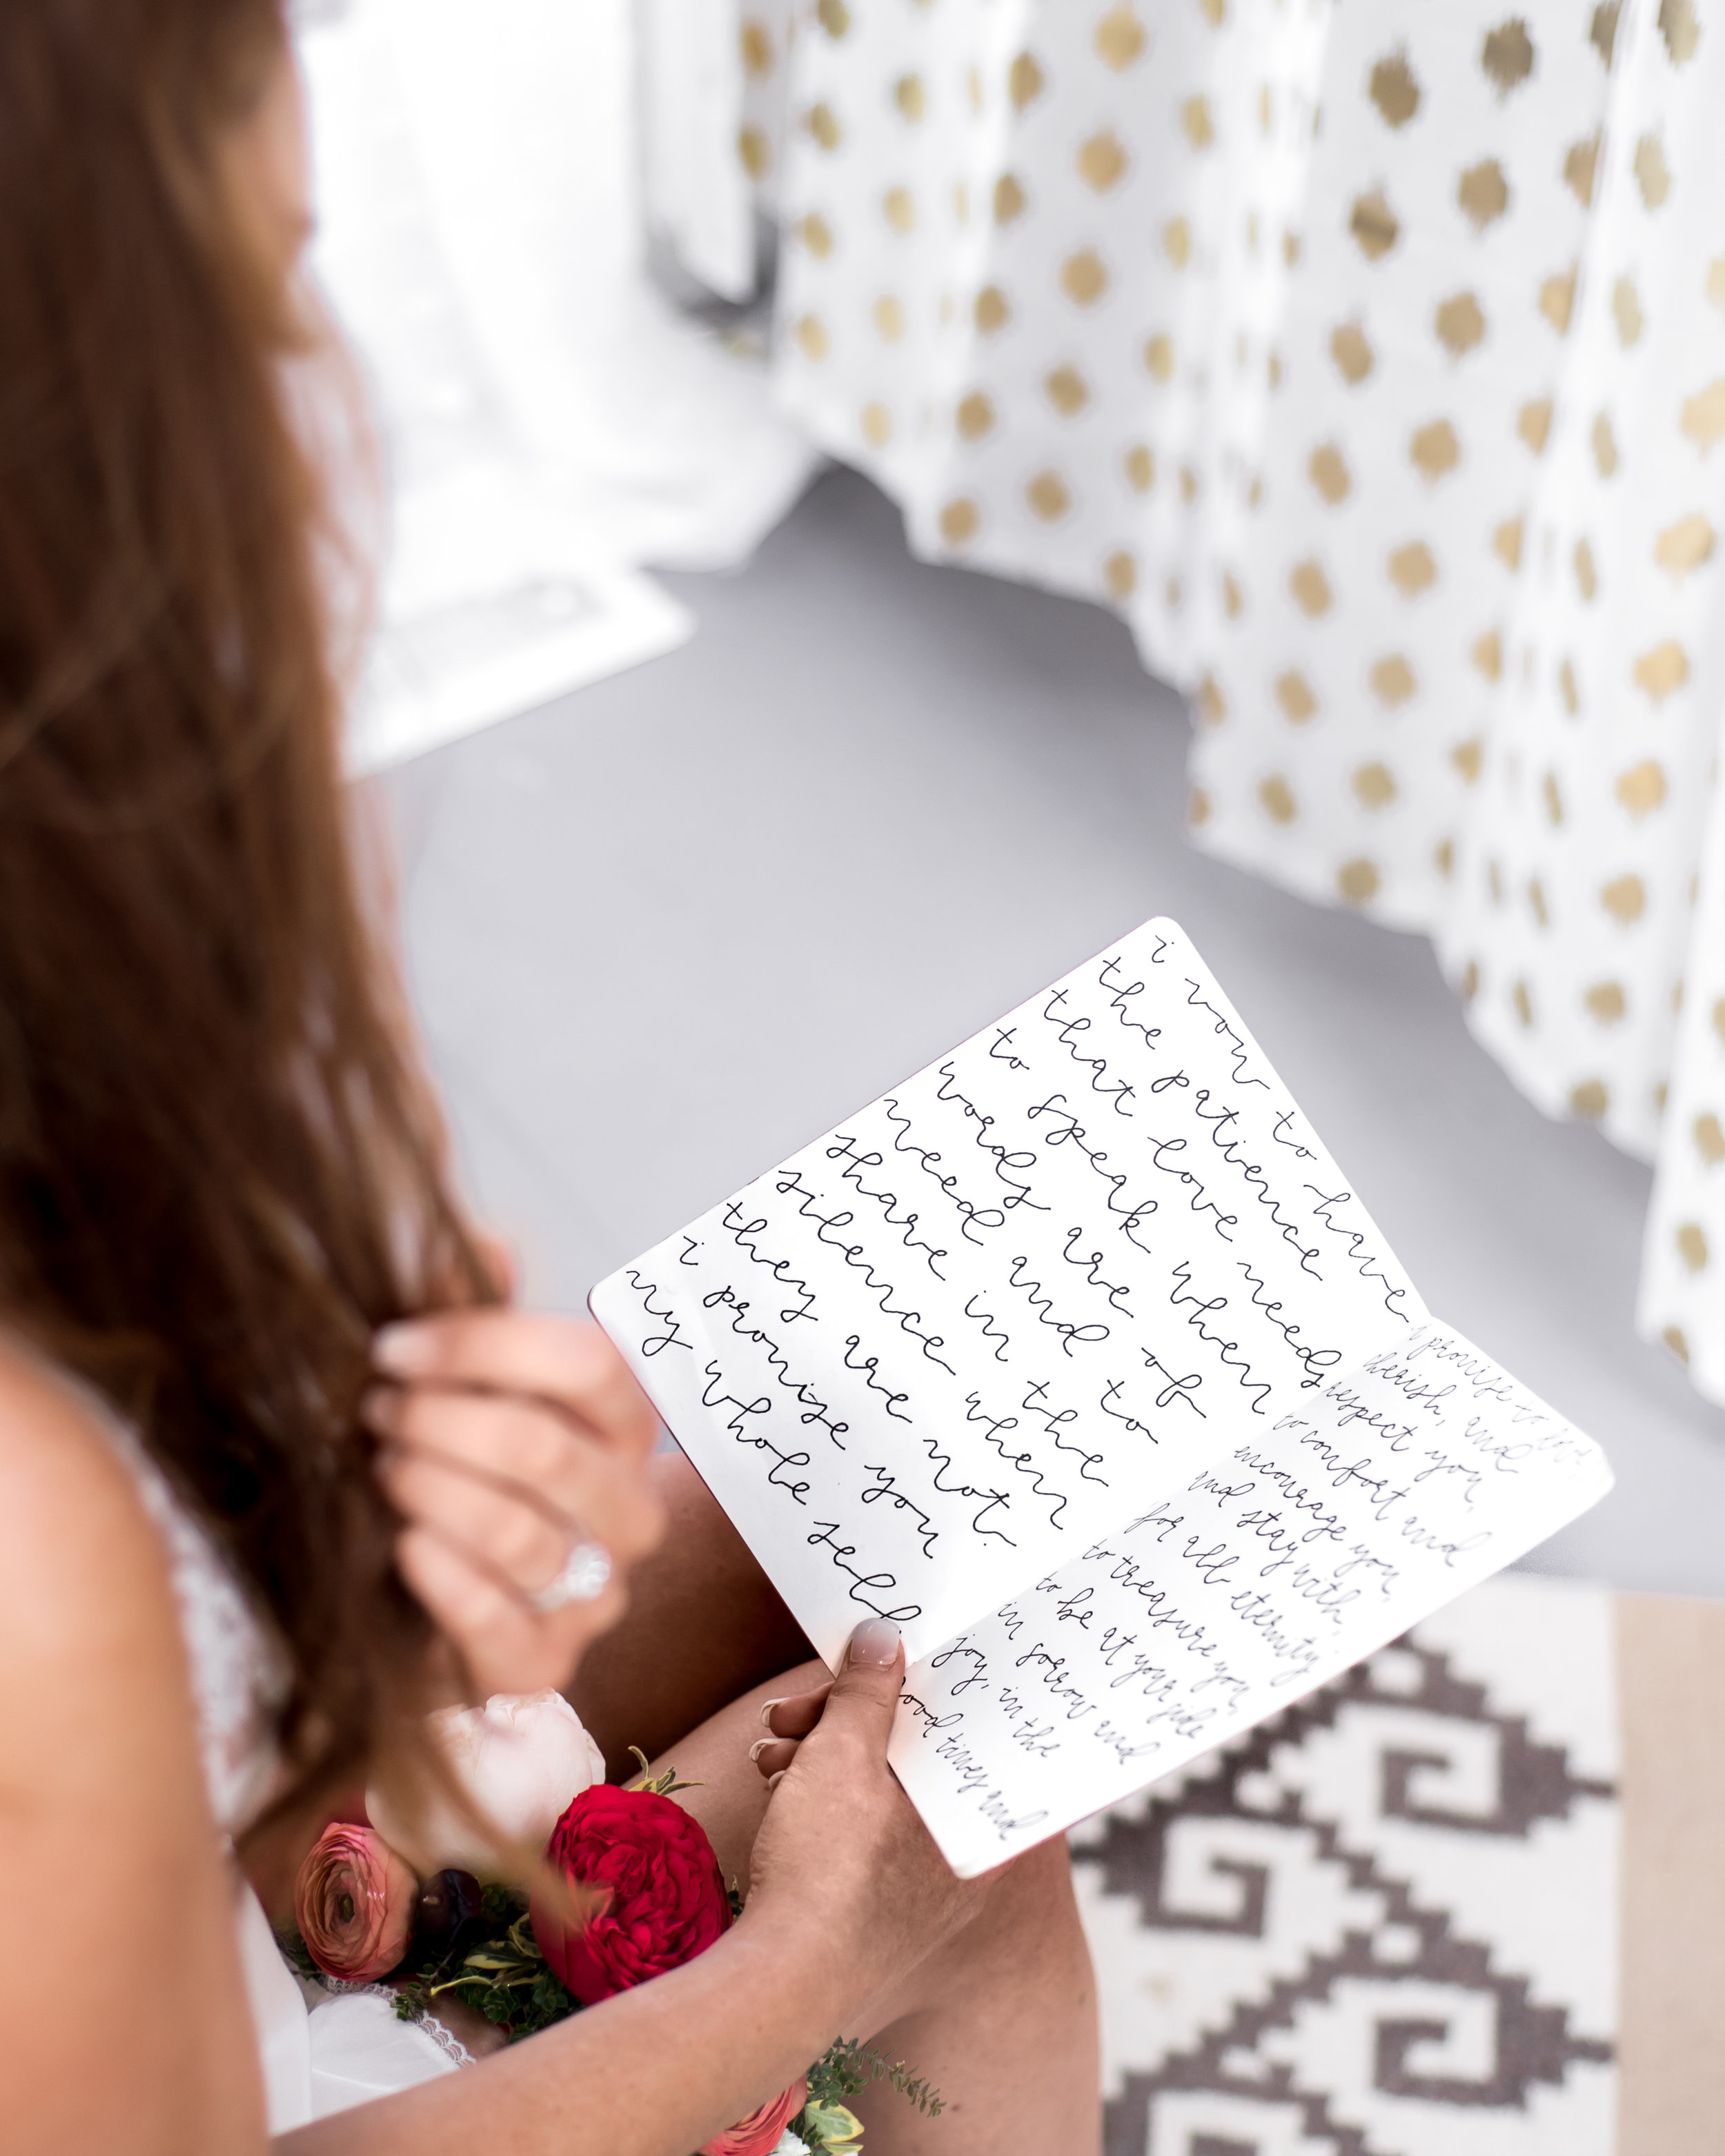 i vow to have
the patience
that love needs
to speak when
words are of
need and to
share in the
silence when
they are not.
i promise you
my whole self
i promise to love,
cherish, and
respect you,
to comfort and
encourage you,
and stay with
for all eternity,
to treasure you,
to be at your side
in sorrow and
joy, in the
good times and